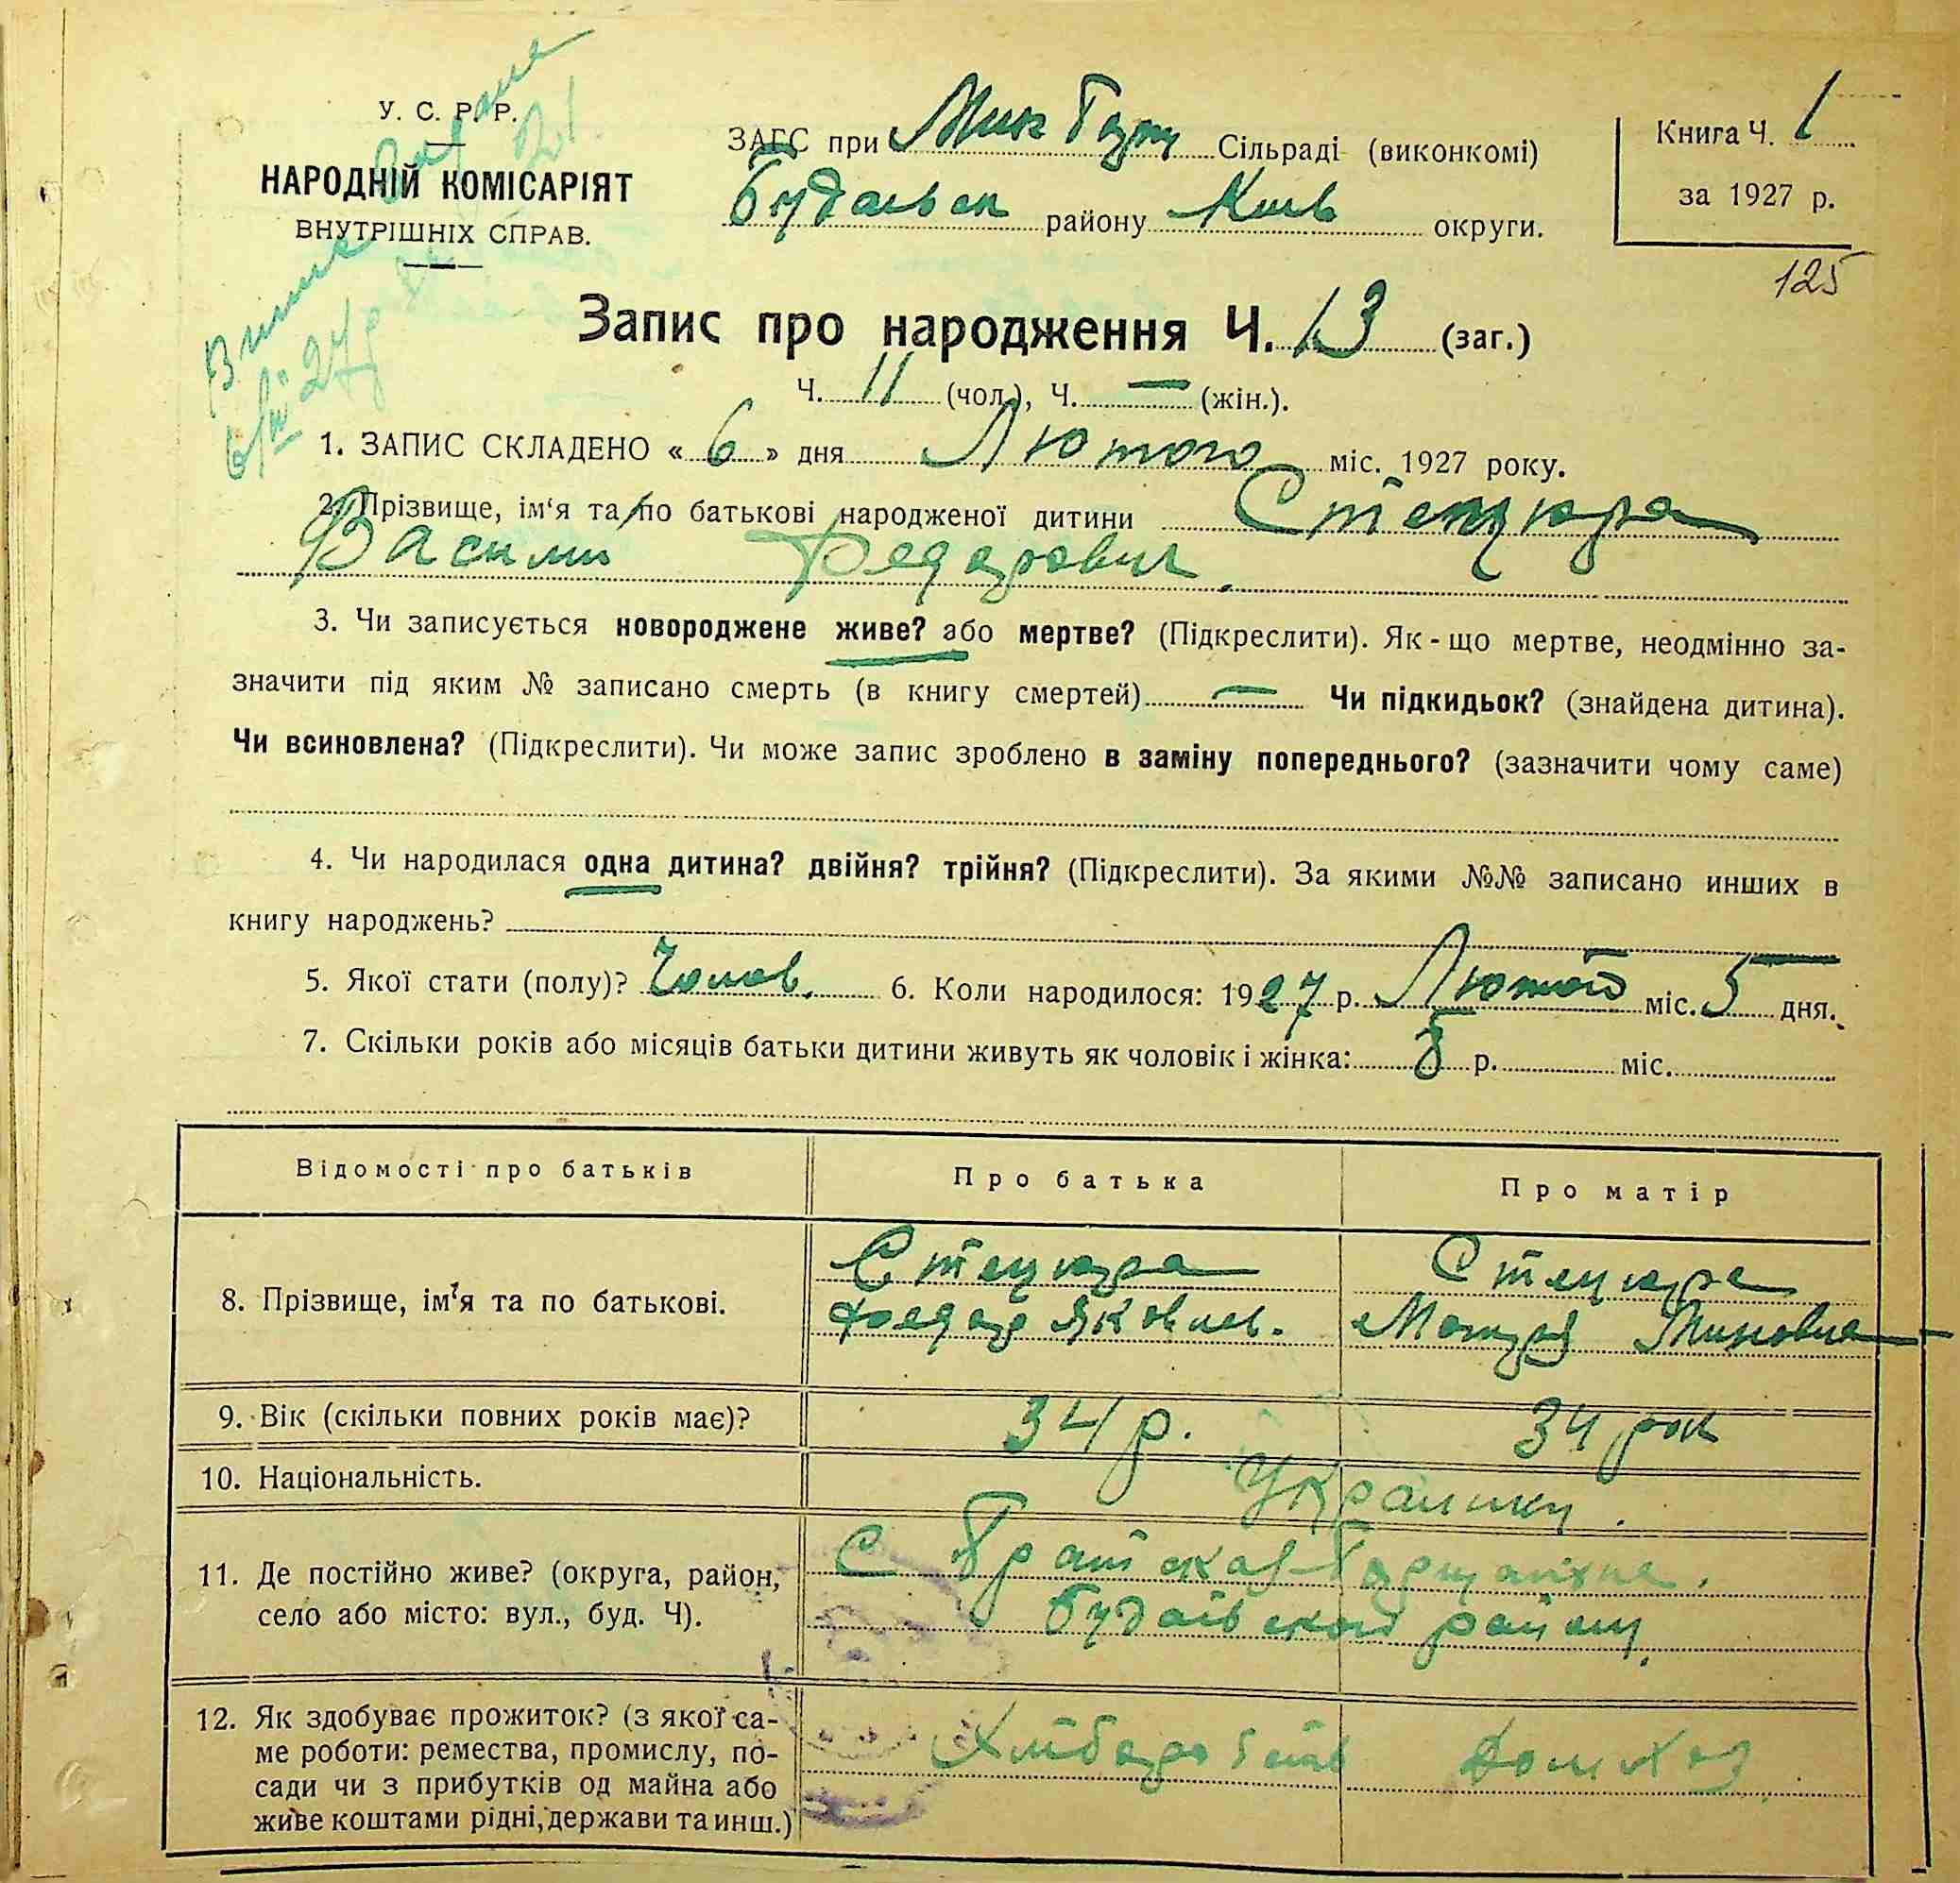 У. С. Р. Р.
НАРОДНІЙ КОМІСАРІЯТ
ВНУТРІШНІХ СПРАВ.
ЗАГС при Мик Борщ Сільраді (виконкомі)
Будаївськ району Київ округи.
Книга Ч. 1
за 1927 р.
125
Запис про народження Ч. 13 (заг.)
Ч. 11 (чол.), Ч. — (жін.).
1. ЗАПИС СКЛАДЕНО « 6 » дня Лютого міс. 1927 року.
2. Прізвище, ім'я та по батькові народженої дитини Стецюра
Василь Федорович.
3. Чи записується новороджене живе? або мертве? (Підкреслити). Як-що мертве, неодмінно за-
значити під яким № записано смерть (в книгу смертей) — Чи підкидьок? (знайдена дитина).
Чи всиновлена? (Підкреслити). Чи може запис зроблено в заміну попереднього? (зазначити чому саме)
4. Чи народилася одна дитина? двійня? трійня? (Підкреслити). За якими №№ записано инших в
книгу народжень? —
5. Якої стати (полу)? Чолов. 6. Коли народилося: 1927 р. Лютого міс. 5 дня.
7. Скільки років або місяців батьки дитини живуть як чоловік і жінка: р. міс.
Відомості про батьків Про батька Про матір
8. Прізвище, ім'я та по батькові. Стецюра Стецюра
Федор Яковлев. Мотря Миновна
9. Вік (скільки повних років має)? 34 р. 34 рок
10. Національність. Українци.
11. Де постійно живе? (округа, район,
село або місто: вул., буд. Ч).
С Братская-Борщагивка.
Будаівского району.
12. Як здобуває прожиток? (з якої са-
ме роботи: ремества, промислу, по-
сади чи з прибутків од майна або
живе коштами рідні, держави та инш.)
Хліборобств Домхоз